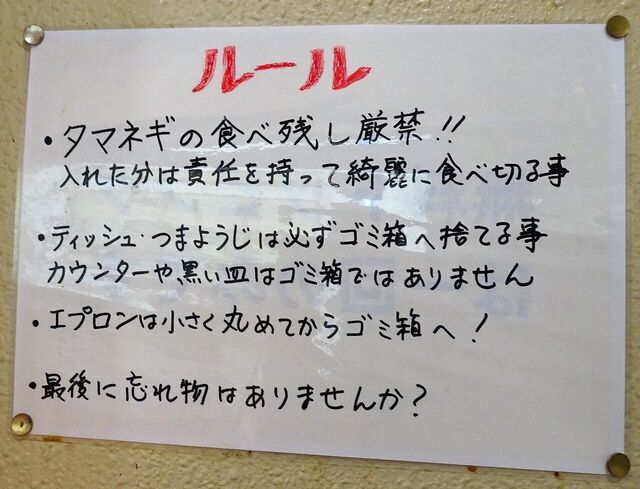 ルール
・タマネギの食べ残し厳禁!!
入れた分は責任を持って綺麗に食べ切る事
・ティッシュ・つまようじは必ずゴミ箱へ捨てる事
カウンターや黒い皿はゴミ箱ではありません
・エプロンは小さく丸めてからゴミ箱へ!
・最後に忘れ物はありませんか?